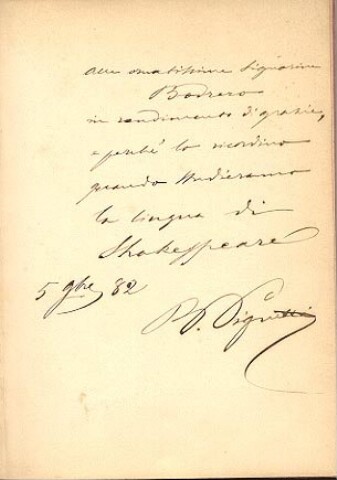 Alle ornatissime Signorine
Bodrero
in rendimento di grazie,
e perchè lo ricordino
quando studieranno
la lingua di
Shakespeare
5 9bre 82